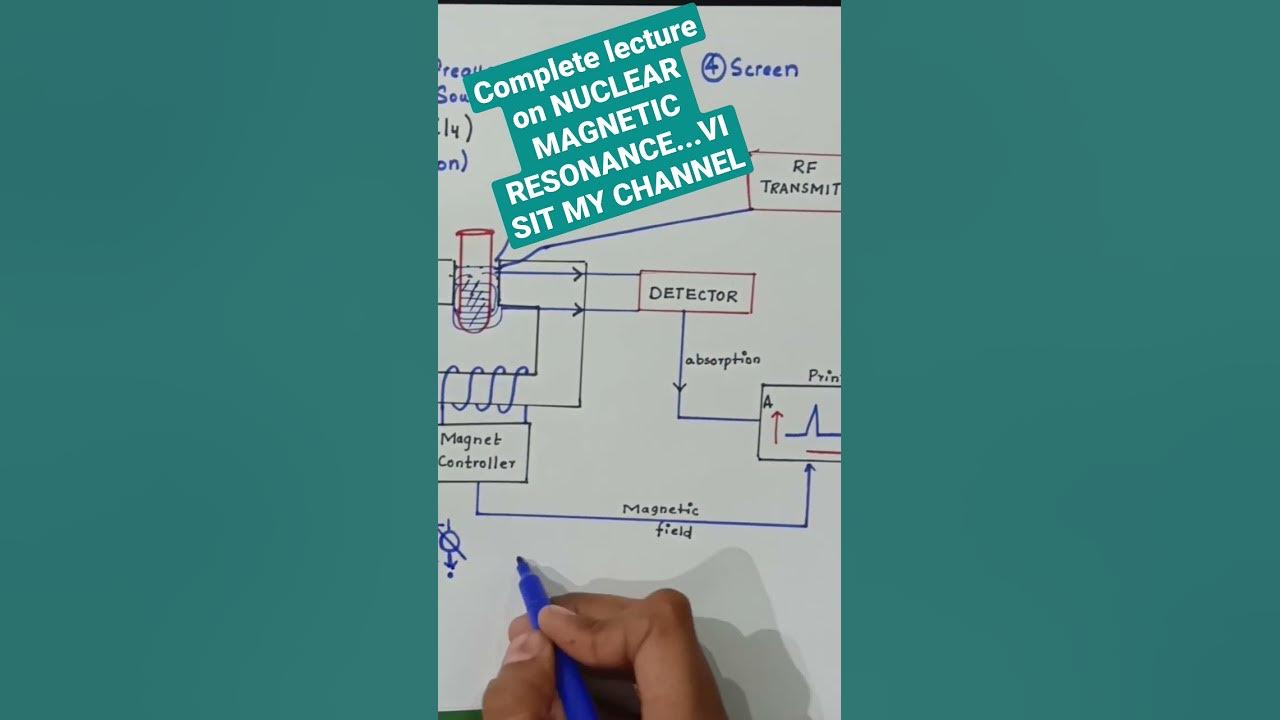 Complete lecture
on NUCLEAR
MAGNETIC
RESONANCE...VI
SIT MY CHANNEL
④ Screen
Sou
on)
RF
TRANSMIT
DETECTOR
absorption
Prin
A
Magnet
Controller
Magnetic
field
-1